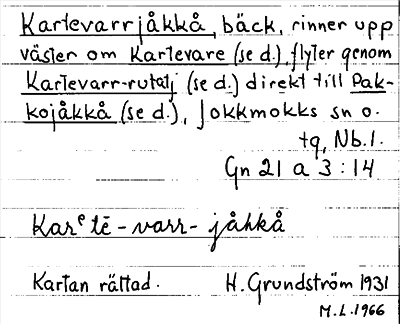 Kartevarrjåkkå, bäck, rinner upp
väster om Kartevare (se d.), flyter genom
Kartevarr-rutatj (se d.) direkt till Pak-
kojåkkå (se d.), Jokkmokks sn o.
tg, Nb.l.
Gn 21 a 3:14
Karᵉtē-varr-jåhkå
Kartan rättad. H. Grundström 1931
M.L. 1966